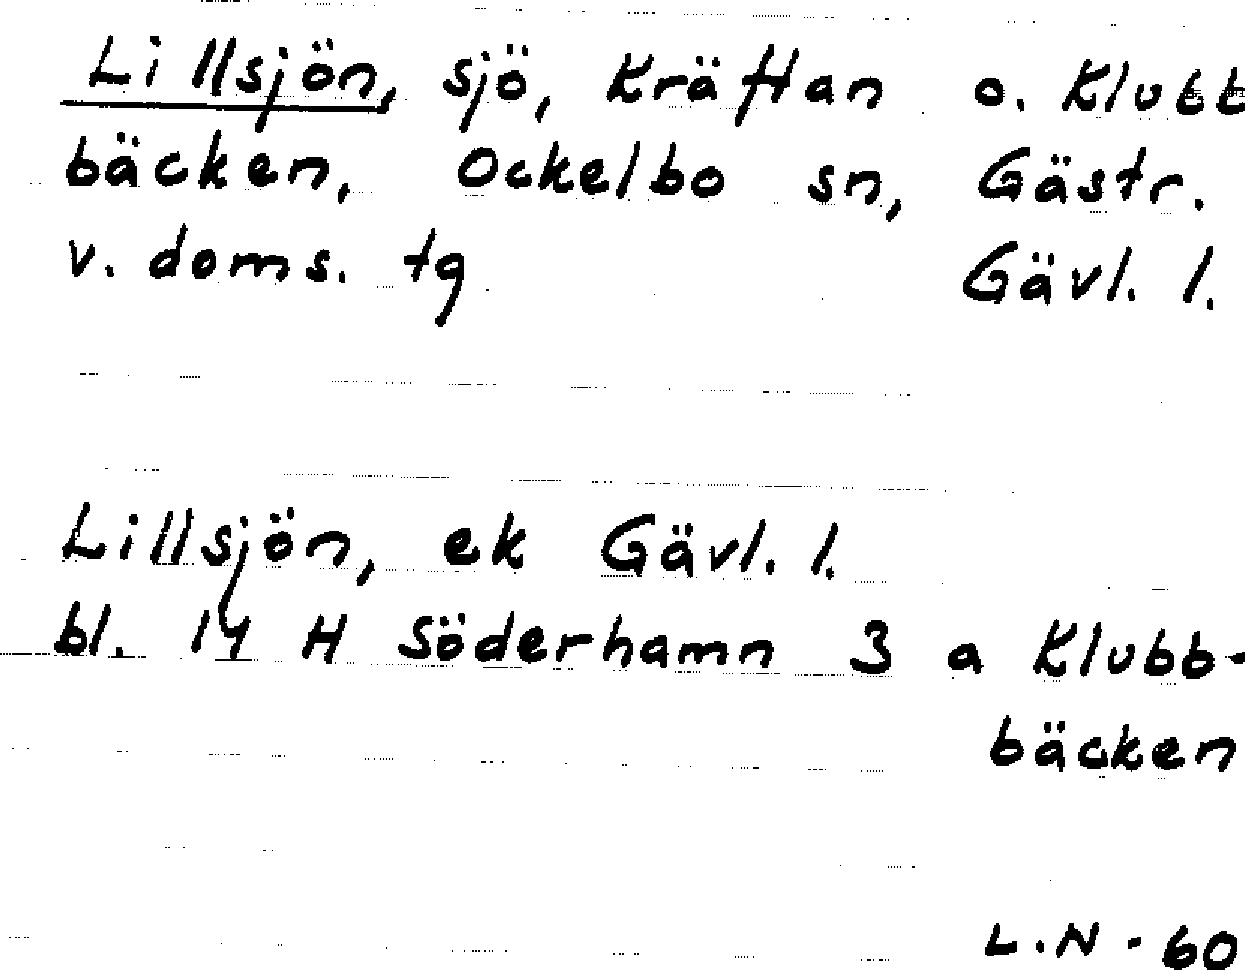 Lillsjön, sjö, Kräftan o. Klubb
bäcken, Ockelbo sn, Gästr.
v. doms. tg Gävl. l.
Lillsjön, ek Gävl. l.
bl. 14 H Söderhamn 3 a Klubb-
bäcken
L.N - 60